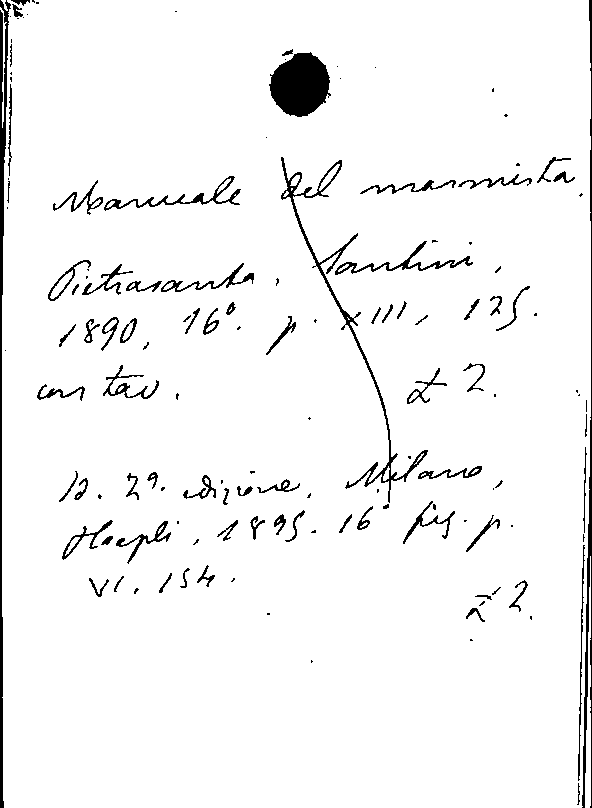 Manuale del marmista.
Pietrasanta, Santini,
1890, 16º. p. XIII, 125.
con tav.
£ 2.
Id. 2ª. edizione, Milano,
Hoepli, 1895. 16º fig. p.
VI. 154.
£ 2.